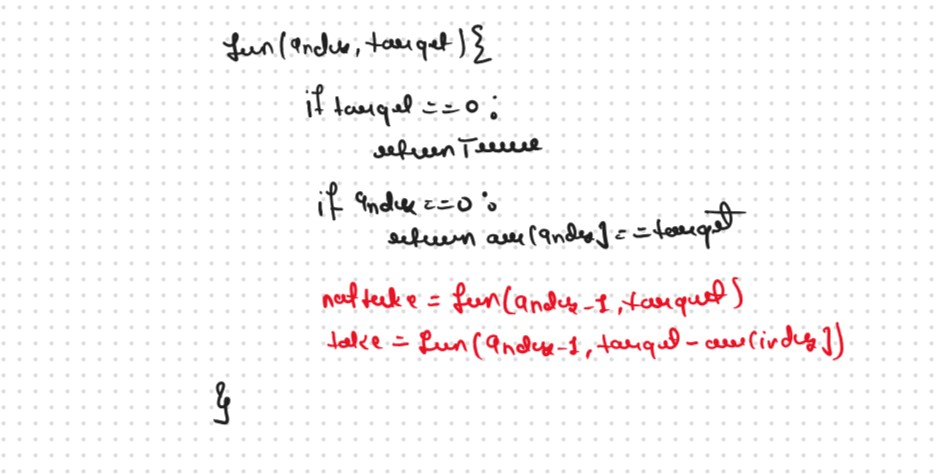 fun(index, target){
if target == 0 :
return True
if index == 0 :
return arr[index] == target
nottake = fun(index-1, target)
take = fun(index-1, target - arr[index])
}